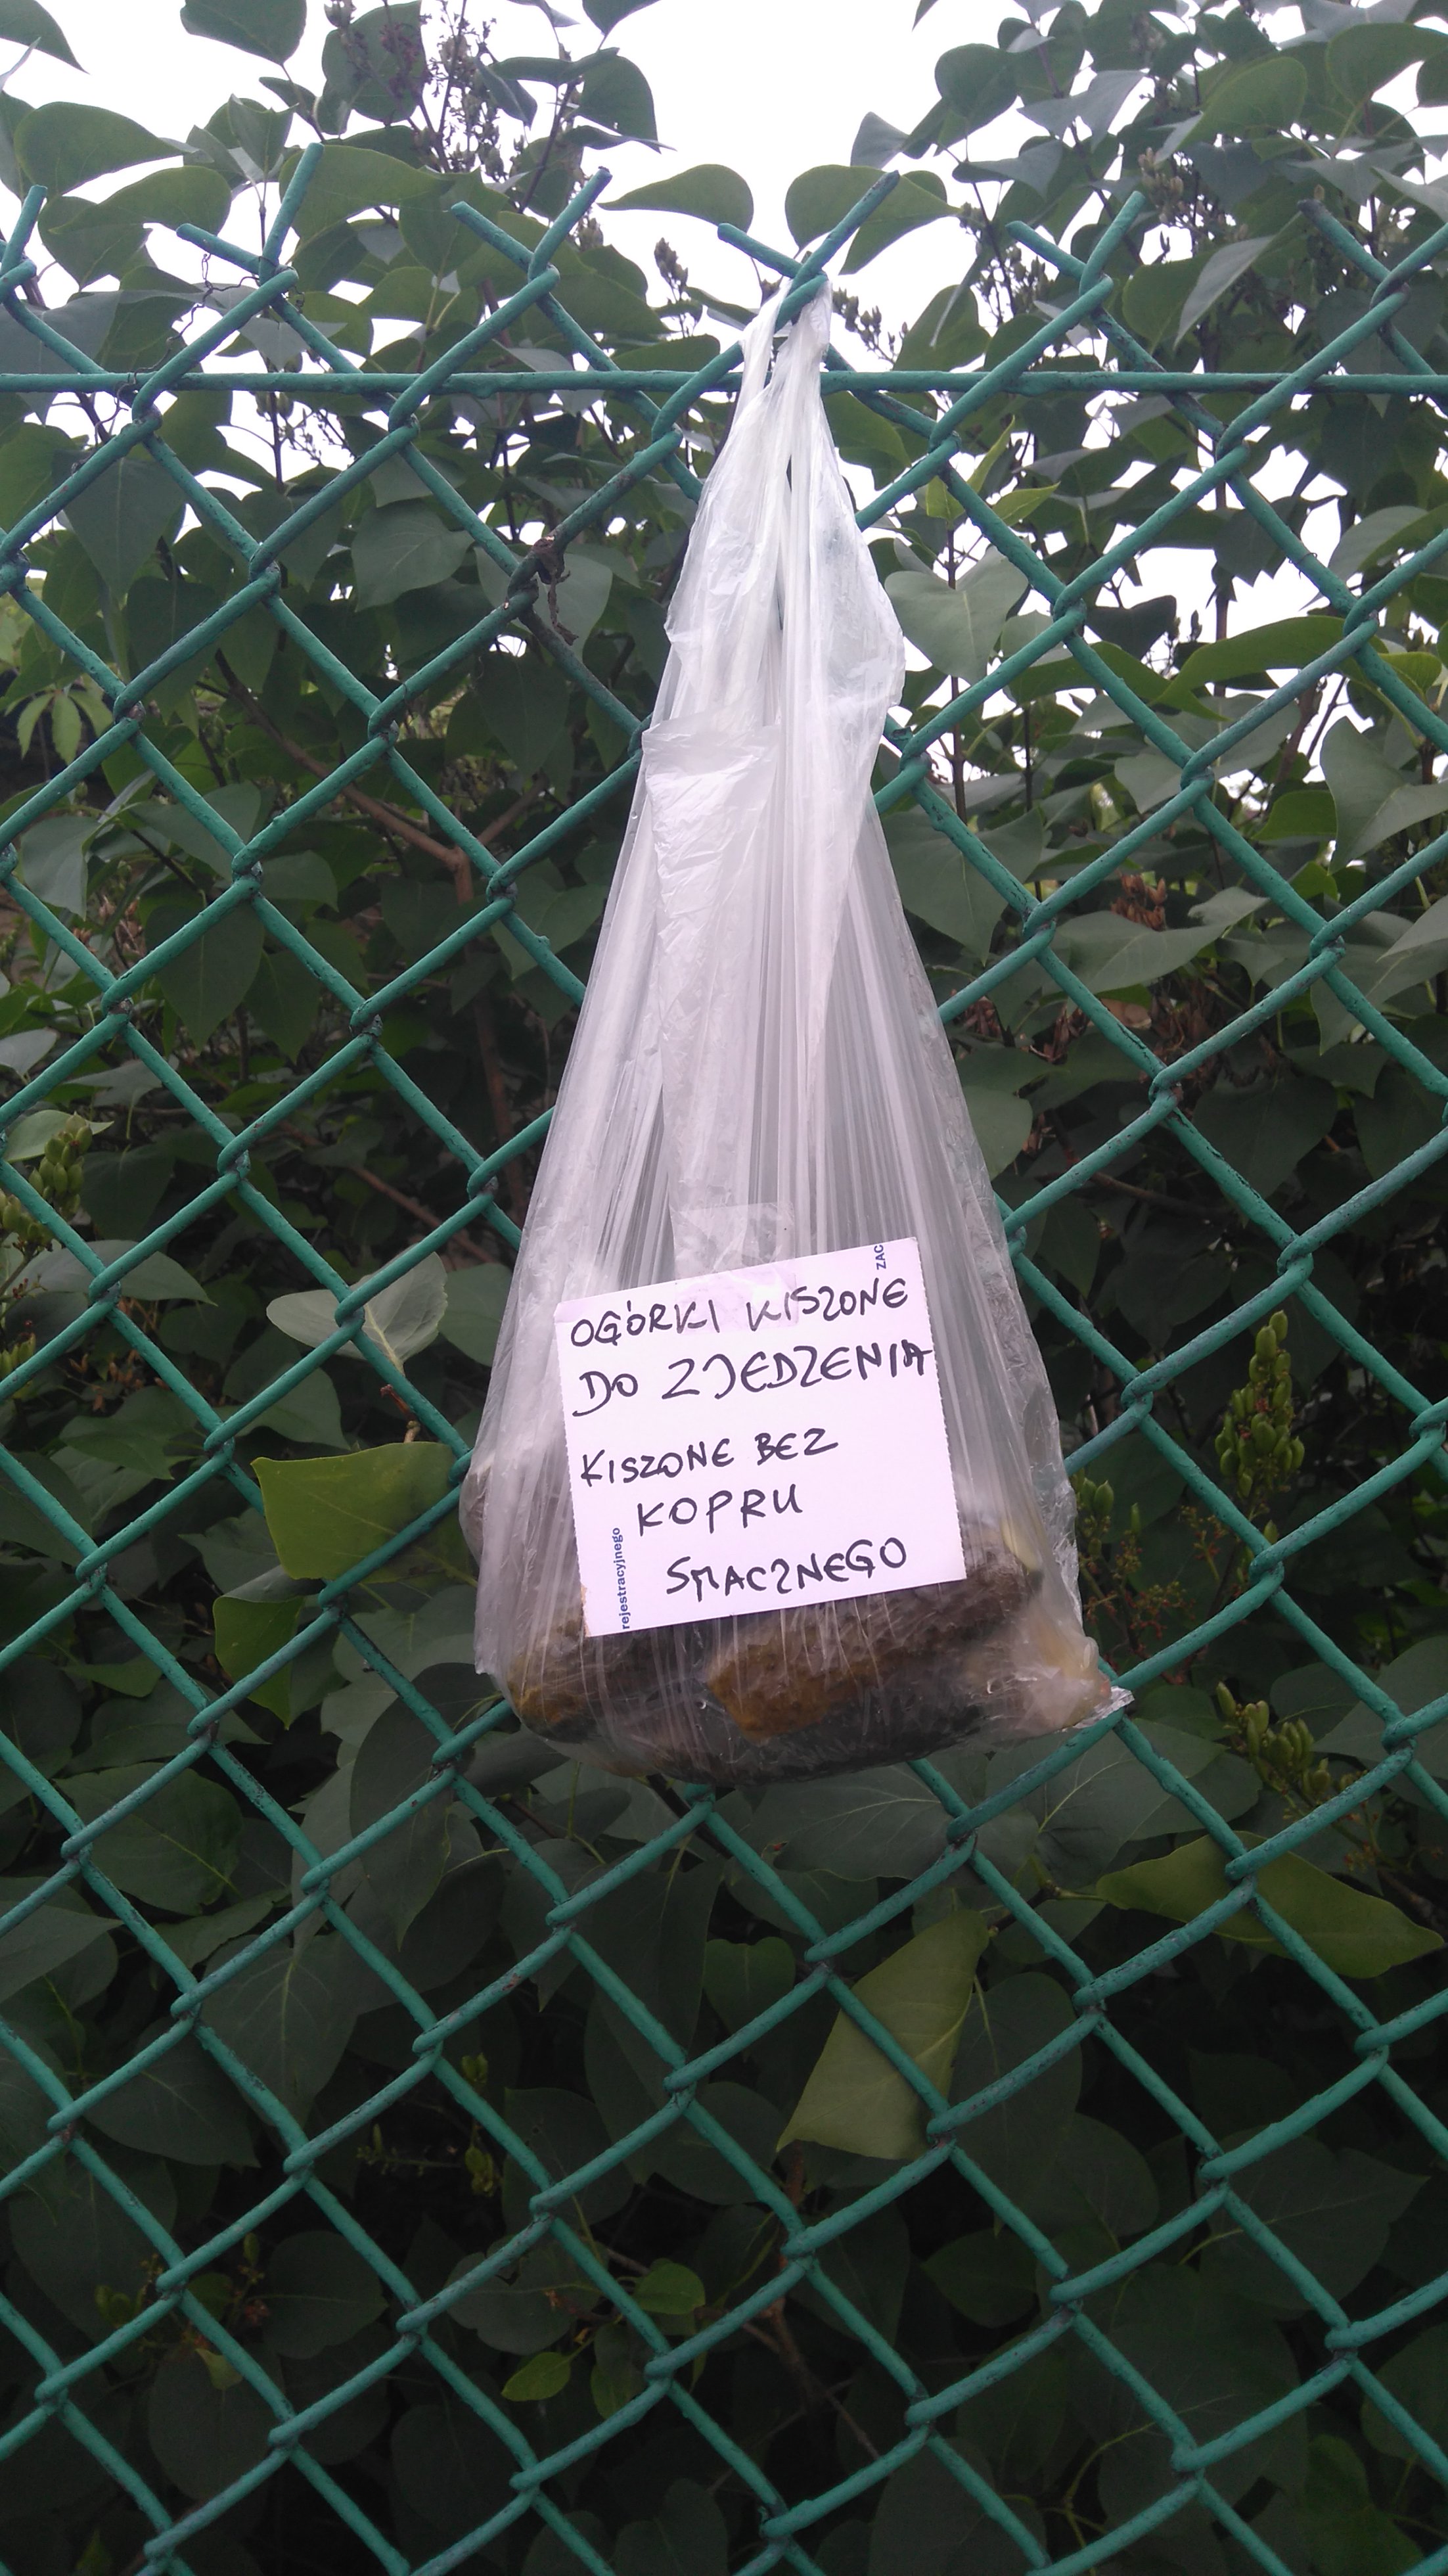 OGÓRKI KISZONE
DO ZJEDZENIA
KISZONE BEZ
KOPRU
SMACZNEGO
rejestracyjnego
ZAC